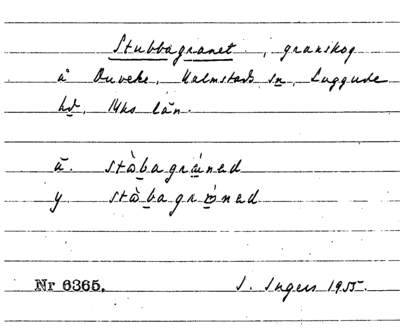 Stubbagranet, granskog
å Duveke, Halmstads sn, Luggude
hd, Mhs län.
ä. stò̀bagránad
y stò̀bagránad
Nr 6365. I. Ingers 1955.